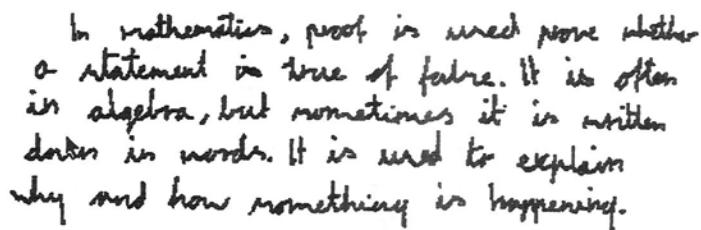 In mathematics, proof is used prove whether
a statement is true of false. It is often
in algebra, but sometimes it is written
down in words. It is used to explain
why and how something is happening.